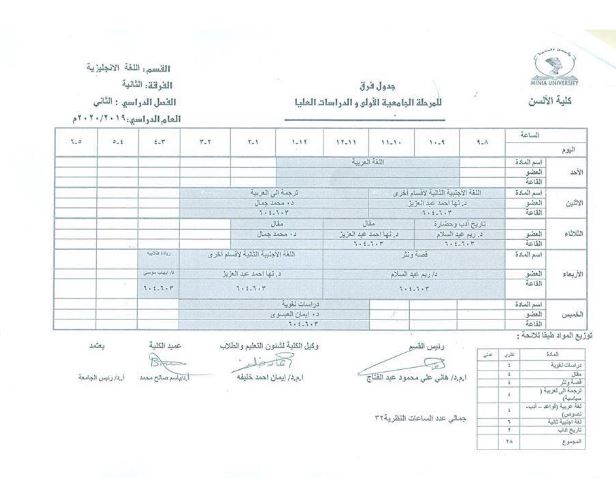 MINIA UNIVERSITY
كلية الألسن
جدول فرق
للمرحلة الجامعية الأولى و الدراسات العليا
القسم: اللغة الانجليزية
الفرقة: الثانية
الفصل الدراسي: الثاني
العام الدراسي: ٢٠٢٠/٢٠١٩م
الساعة ٨-٩ ٩-١٠ ١٠-١١ ١١-١٢ ١٢-١ ١-٢ ٢-٣ ٣-٤ ٤-٥ ٥-٦
اليوم
الأحد
اسم المادة اللغة العربية
العضو
القاعة
الاثنين
اسم المادة اللغة الأجنبية الثانية لأقسام أخرى ترجمة الى العربية
العضو د. لها احمد عبد العزيز د. محمد جمال
القاعة ٦٠٣-٦٠٤ ٦٠٣-٦٠٤
الثلاثاء
اسم المادة تاريخ أدب وحضارة مقال مقال
العضو د. ريم عبد السلام د. لها احمد عبد العزيز د. محمد جمال
القاعة ٦٠٣-٦٠٤ ٦٠٣-٦٠٤
الأربعاء
اسم المادة قصة ونثر اللغة الأجنبية الثانية لأقسام أخرى ريادة طلابية
العضو د/ ريم عبد السلام د. لها احمد عبد العزيز د/ ايهاب موسى
القاعة ٦٠٣-٦٠٤ ٦٠٣-٦٠٤
الخميس
اسم المادة دراسات لغوية
العضو د. ايمان العيسوى
القاعة ٦٠٣-٦٠٤
توزيع المواد طبقا للائحة:
المادة نظري عملى
دراسات لغوية ٤
مقال ٤
قصة ونثر ٤
ترجمة الى العربية (سياسية) ٤
لغة عربية (قواعد – أدب- نصوص) ٤
لغة اجنبية ثانية ٦
تاريخ أدب ٢
المجموع ٢٨
جمالي عدد الساعات النظرية ٣٢
رئيس القسم
ا.م.د/ هاني علي محمود عبد الفتاح
وكيل الكلية لشئون التعليم والطلاب
ا.م.د/ إيمان احمد خليفه
عميد الكلية
أ.د/ياسم صالح محمد
يعتمد
أ.د/ رئيس الجامعة